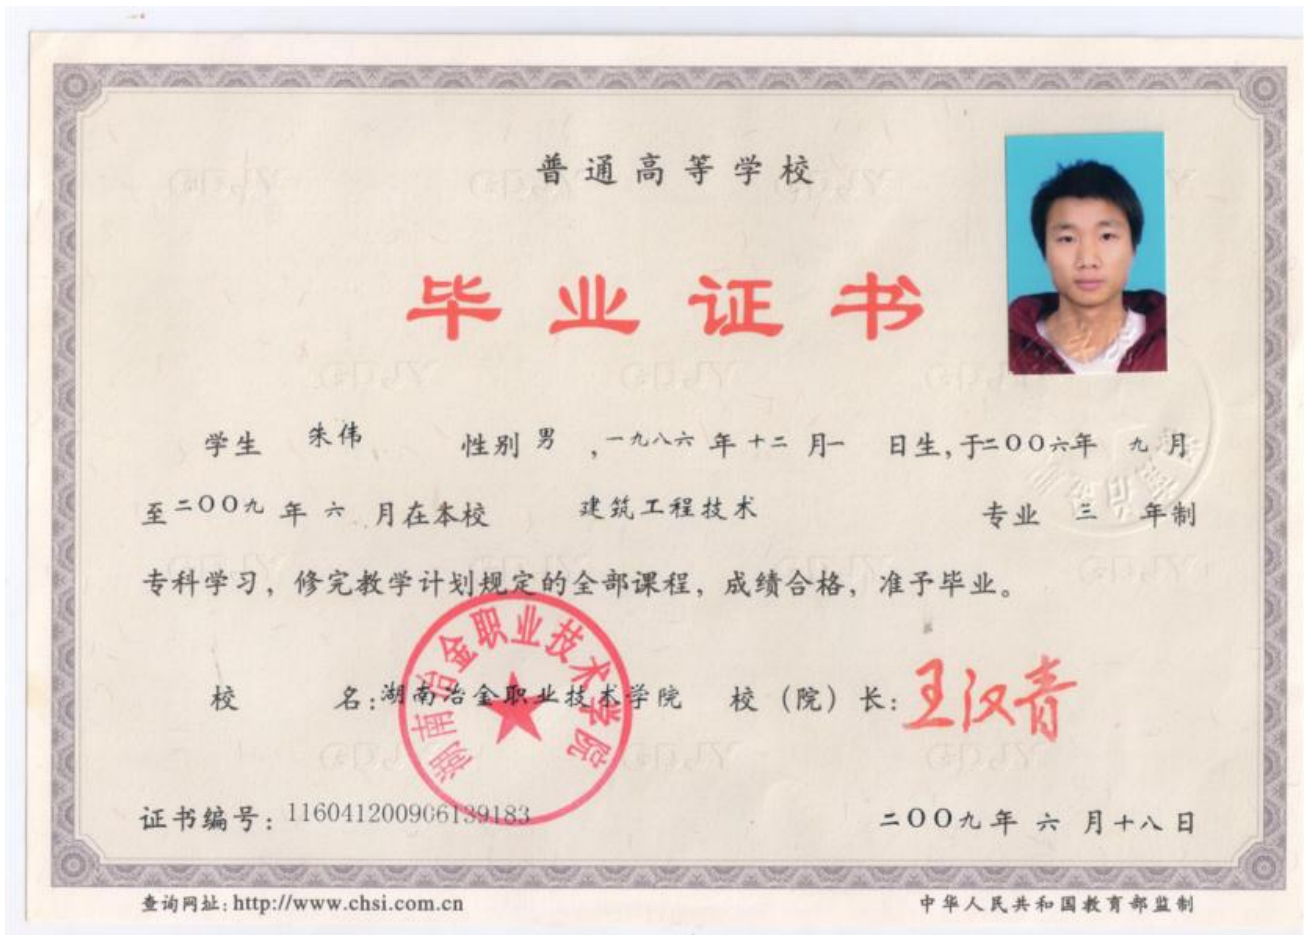 普通高等学校
毕业证书
学生 朱伟 性别 男 ，一九八六 年 十二 月一 日生，于二〇〇六年 九 月
至二〇〇九 年 六 月在本校 建筑工程技术 专业 三 年制
专科学习，修完教学计划规定的全部课程，成绩合格，准予毕业。
校 名：湖南冶金职业技术学院 校（院）长：王汉青
湖南冶金职业技术学院
证书编号：116041200906139183
二〇〇九年 六 月十八日
查询网址：http://www.chsi.com.cn
中华人民共和国教育部监制